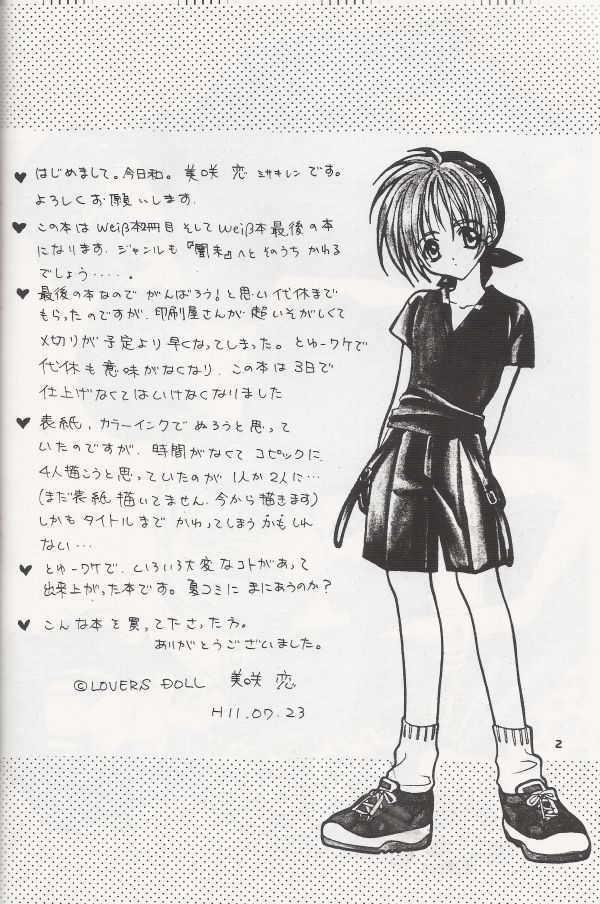 ♥ はじめまして。今日和。 美咲 恋 ミサキレン です。
よろしくお願いします。
♥ この本は Weiß本2冊目 そして Weiß本 最後の本
になります。ジャンルも『闇末』へと そのうち かわる
でしょう・・・・・。
♥ 最後の本なので がんばろう！と思い 代休まで
もらったのですが、印刷屋さんが 超いそがしくて
〆切りが予定より早くなってしまった。とゆーワケで
代休も意味がなくなり、この本は 3日で
仕上げなくてはいけなくなりました
♥ 表紙、カラーインクで ぬろうと思って
いたのですが、時間がなくて コピックに、
4人描こうと思っていたのが 1人か2人に…
(まだ表紙描いてません。今から描きます)
しかもタイトルまで かわってしまう かもしれ
ない…
♥ とゆーワケで、いろいろ大変なコトがあって
出来上がった本です。夏コミに まにあうのか？
♥ こんな本を買って下さった方。
ありがとうございました。
©LOVERS DOLL 美咲 恋
H11.07.23
2